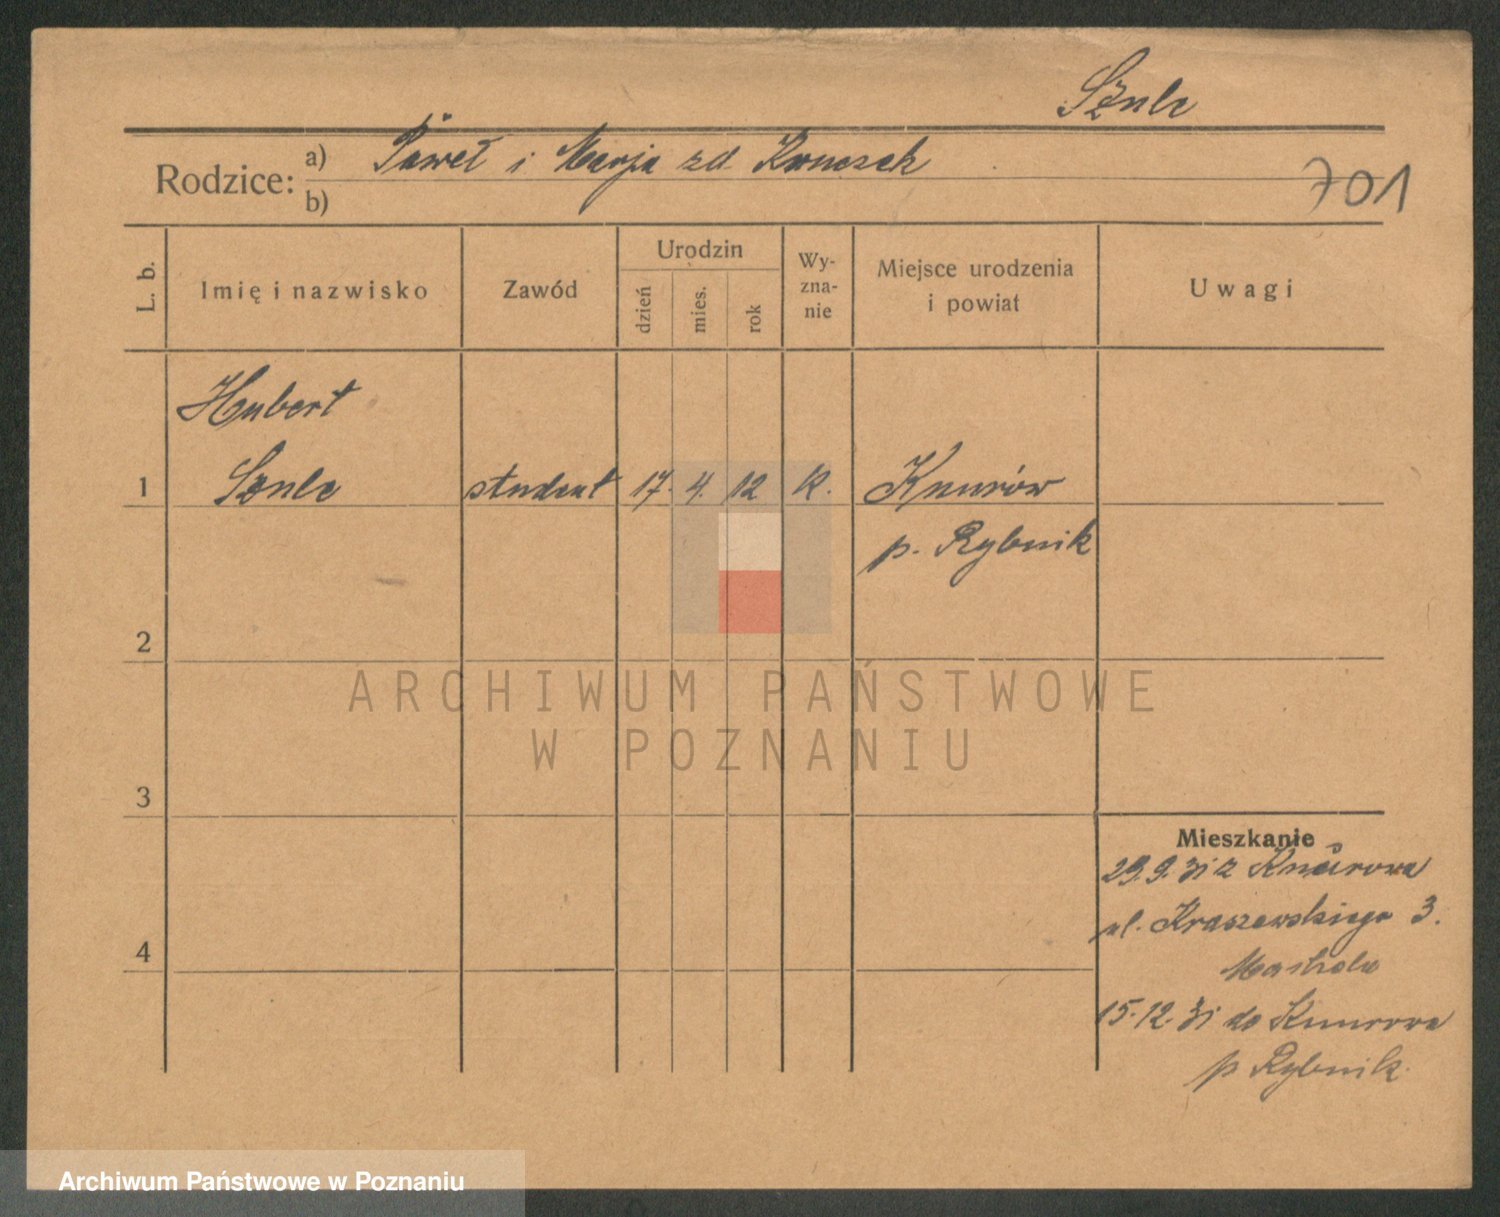 Szulc
Rodzice: a) Paweł i Marja zd.
b)
701
L. b.
Imię i nazwisko
Zawód
Urodzin
dzień
mies.
rok
Wy-
zna-
nie
Miejsce urodzenia
i powiat
Uwagi
Hubert
1 Szulc student 17. 4. 12 k. Knurów
p. Rybnik
2
3
4
Mieszkanie
29.9.31 z Knurowa
ul. Kraszewskiego 3.
15.12.31 do Knurowa
p Rybnik.
ARCHIWUM PAŃSTWOWE
W POZNANIU
Archiwum Państwowe w Poznaniu